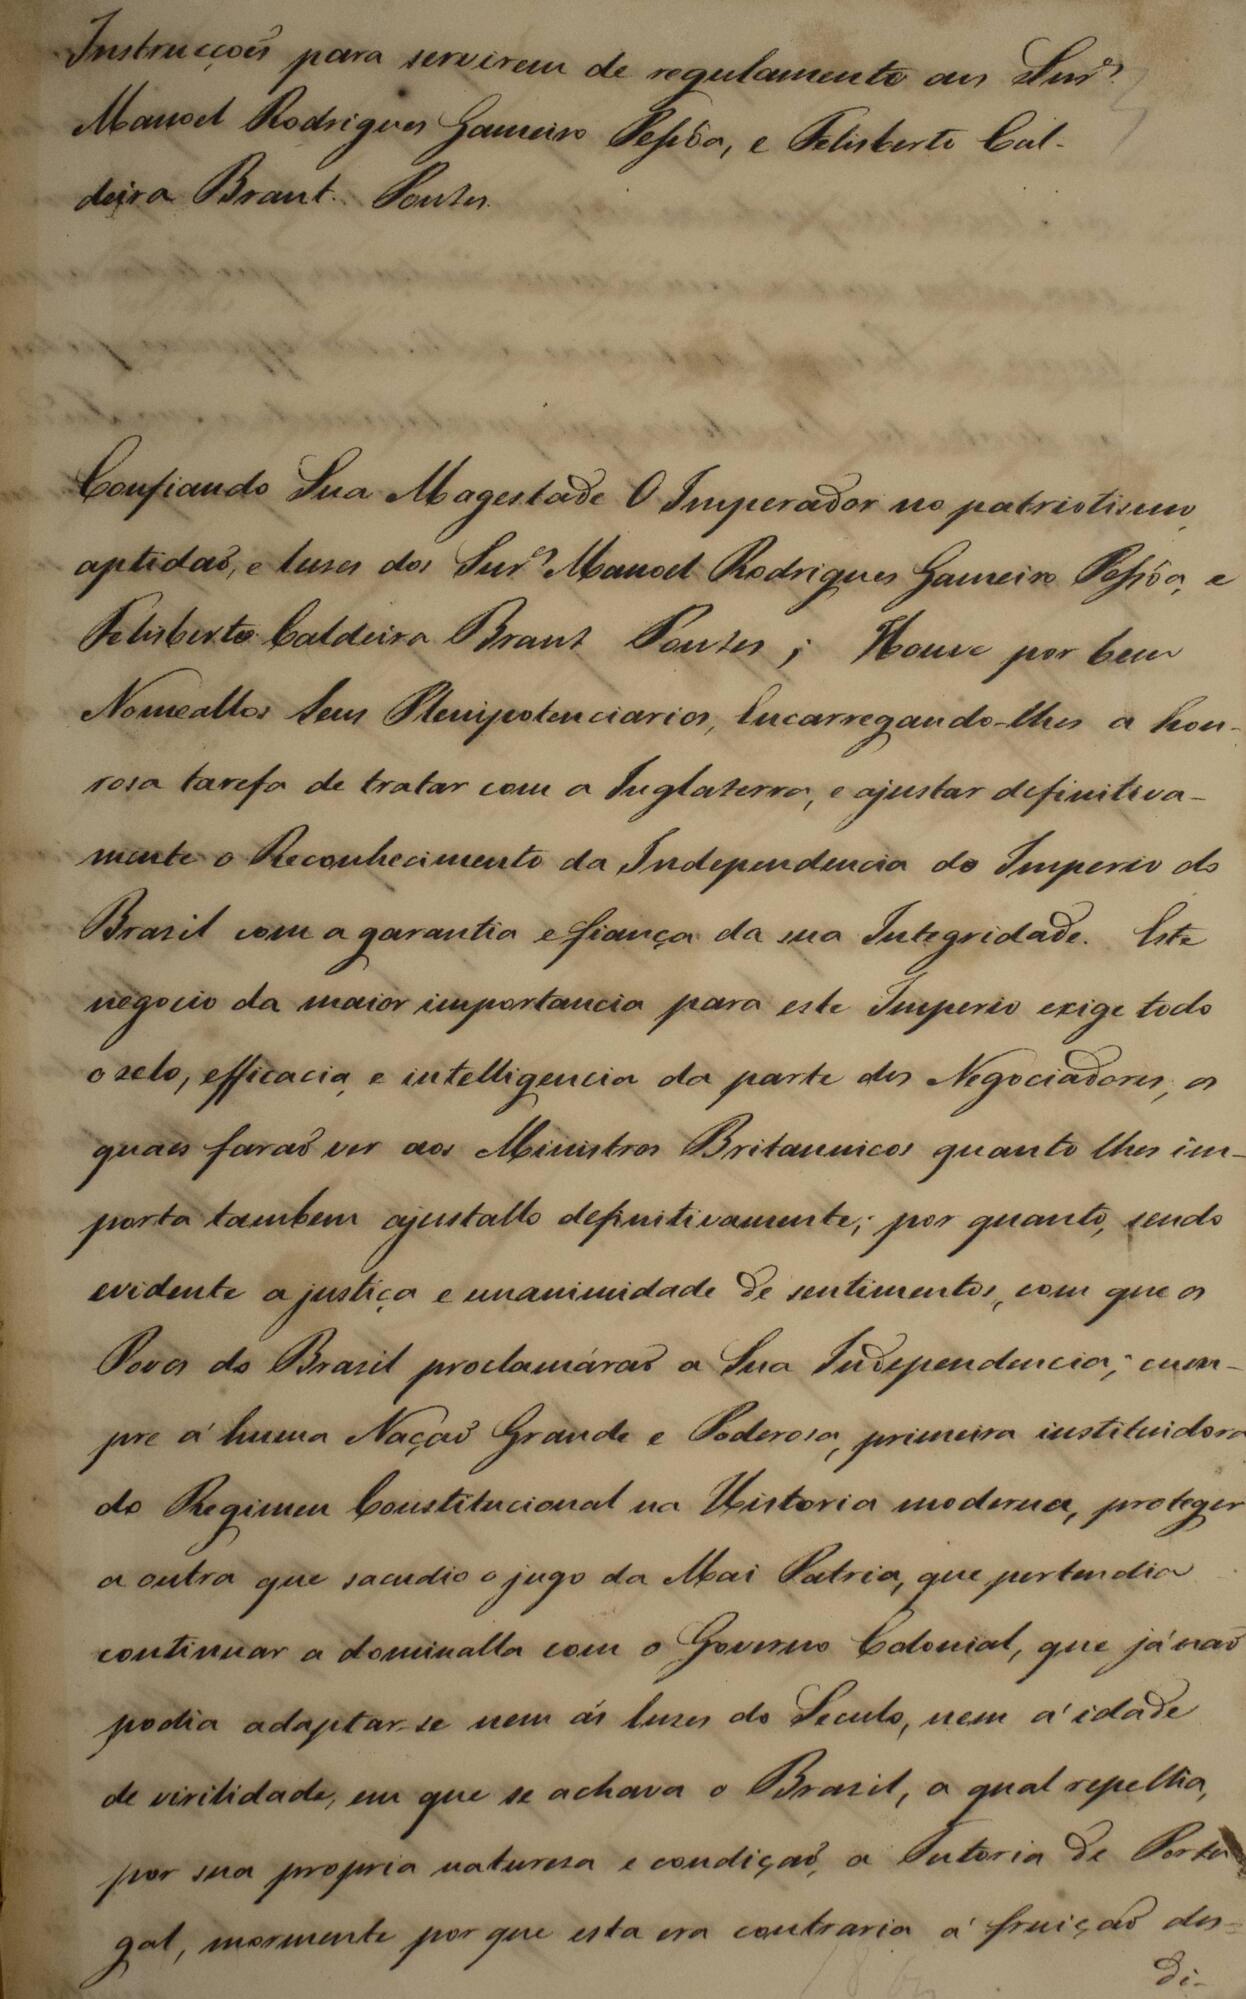 Instrucçoēs para servirem de regulamento aos Snr.es
Manoel Rodrigues Gameiro Pessôa, e Felisberto Cal-
deira Brant. Pontes.
Confiando Sua Magestade O Imperador no patriotismo,
aptidaõ, e luses dos Snr.es Manoel Rodrigues Gameiro Pessôa, e
Felisberto Caldeira Brant Pontes; Houve por bem
Nomeallos Seus Plenipotenciarios, Encarregando-lhes a hon-
rosa tarefa de tratar com a Inglaterra, e ajustar definitiva-
mente o Reconhecimento da Independencia do Imperio do
Brasil com a garantia e fiança da sua Integridade. Este
negocio da maior importancia para este Imperio exige todo
o zelo, efficacia, e intelligencia da parte dos Negociadores, os
quaes faraõ ver aos Ministros Britannicos quanto lhes im-
porta tambem ajustallo definitivamente; por quanto, sendo
evidente a justiça e unanimidade de sentimentos, com que os
Povos do Brasil proclamáraõ a Sua Independencia; cum-
pre á huma Naçaõ Grande e Poderosa, primeira instituidora
do Regimen Constitucional na Historia moderna, proteger
a outra que sacudio o jugo da Mai Patria, que pertendia
continuar a dominalla com o Governo Colonial, que já naõ
podia adaptar-se nem ás luzes do Seculo, nem á idade
de virilidade, em que se achava o Brasil, a qual repellia,
por sua propria naturesa e condiçaõ, a Tutoria de Portu
gal, mormente por que esta era contraria á fruiçaõ dos-
di-